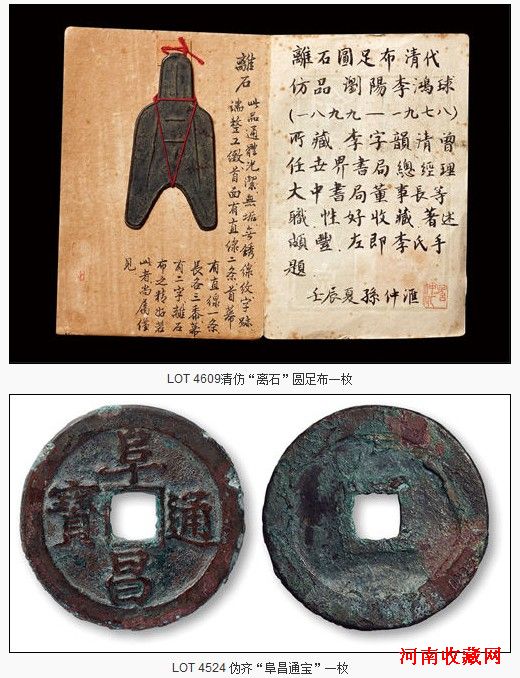 離石圓足布清代
仿品瀏陽李鴻球
(一八九九—一九七八)
所藏.李字韻清曾
任世界書局總經理
大中書局董事長等
職.性好收藏.著述
頗豐.左即李氏手
題
壬辰夏孫仲滙
離石
此品通體光潔無垢無銹線紋字跡
端整工緻首面有直線二条首幕
有直線一条
長各三黍幕
有二字離石
布之精好若
此者尚屬僅
見
LOT 4609清仿“离石”圆足布一枚
阜昌通寳
LOT 4524 伪齐“阜昌通宝”一枚
河南收藏网